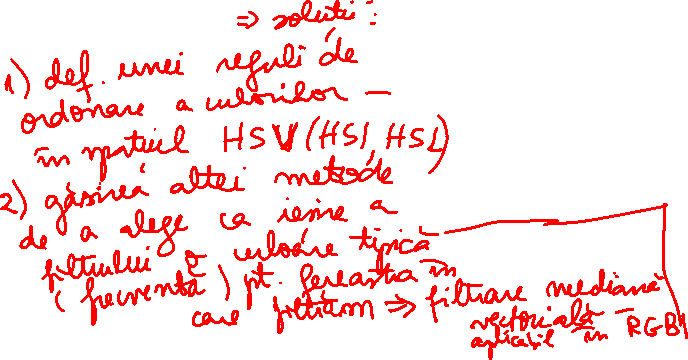 ⇒ soluții:
1) def. unei reguli de
ordonare a culorilor –
în spațiul HSV (HSI, HSL)
2) găsirea altei metode
de a alege ca ieșire a
filtrului o culoare tipică
(frecventă) pt. fereastra în
care filtrăm ⇒ filtrare mediană
vectorială –
aplicabil în RGB!